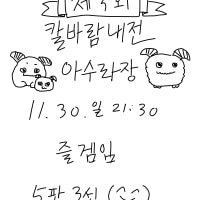 칼바람내전
아수라장
11.30.일 21:30
즐겜임
5판 3선 (^^)